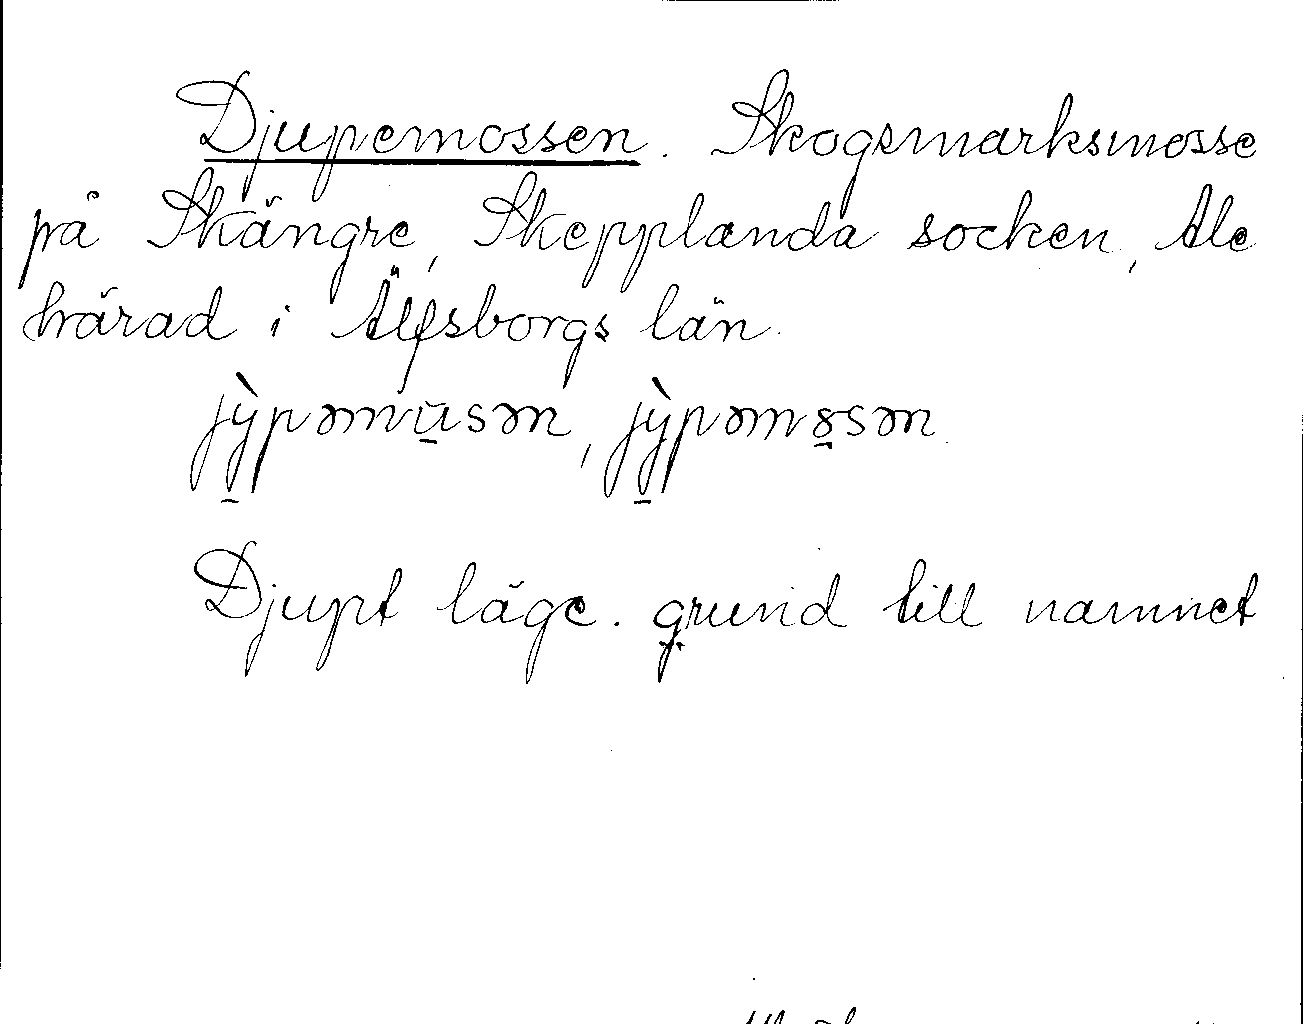 Djupemossen. Skogsmarksmosse
på Skängre, Skepplanda socken, Ale
härad i Älfsborgs län.
jỳ̠pəmu̠̅sən, jỳ̠pəm8̠sən.
Djupt läge. grund till namnet